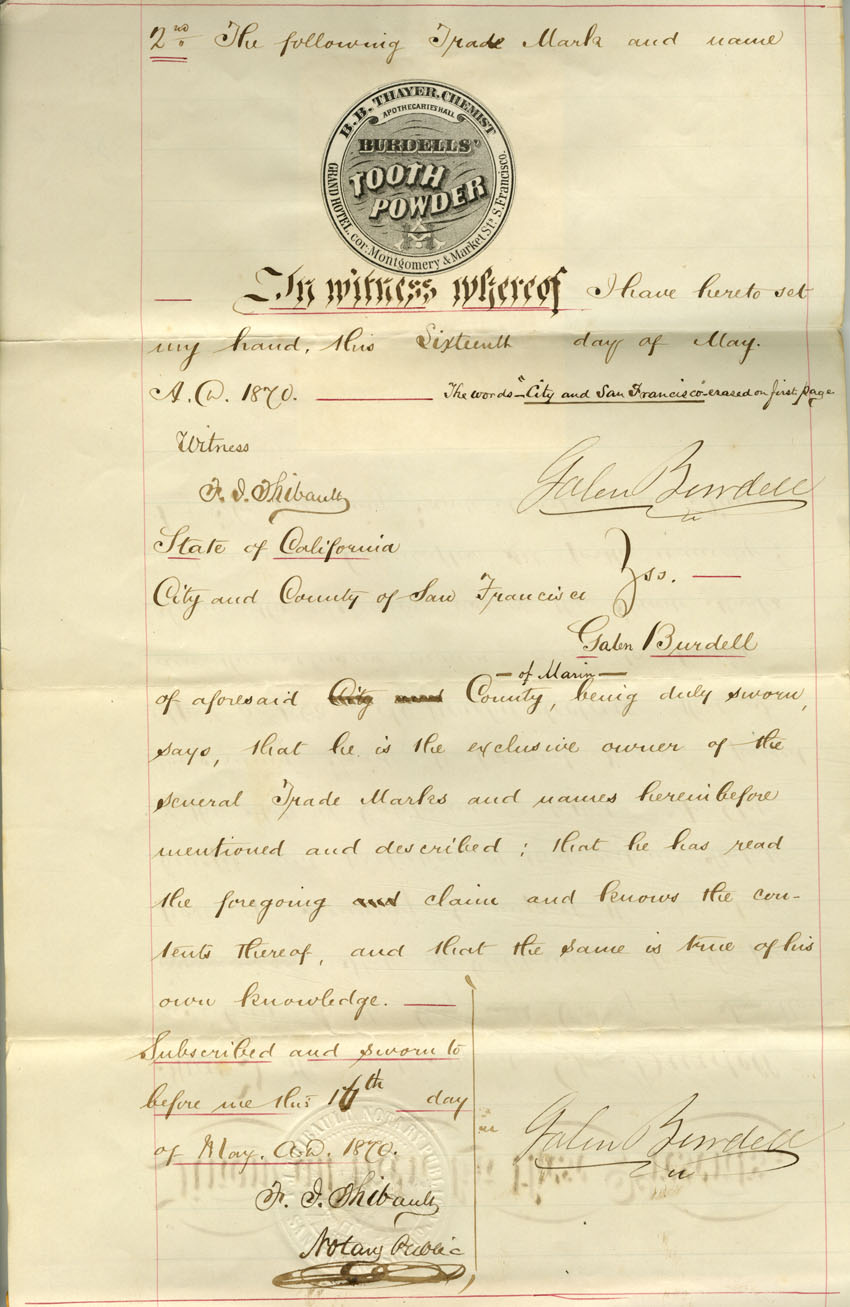 2nd. The following Trade Mark and name
B. B. THAYER, CHEMIST
APOTHECARIES HALL
BURDELLS'
TOOTH
POWDER
GRAND HOTEL, cor. Montgomery & Market Sts. S. Francisco.
— In witness whereof I have hereto set
my hand, this Sixteenth day of May.
A.D. 1870. — The words "City and San Francisco" erased on first page
Witness
F. J. Thibault
Galen Burdell
State of California
City and County of San Francisco } ss. —
Galen Burdell
— of Marin —
of aforesaid City and County, being duly sworn,
says, that he is the exclusive owner of the
several Trade Marks and names hereinbefore
mentioned and described; that he has read
the foregoing and claim and knows the con-
tents thereof, and that the same is true of his
own knowledge. —
Subscribed and sworn to
before me this 16th day
of May. A.D. 1870.
Galen Burdell
F. J. Thibault
Notary Public